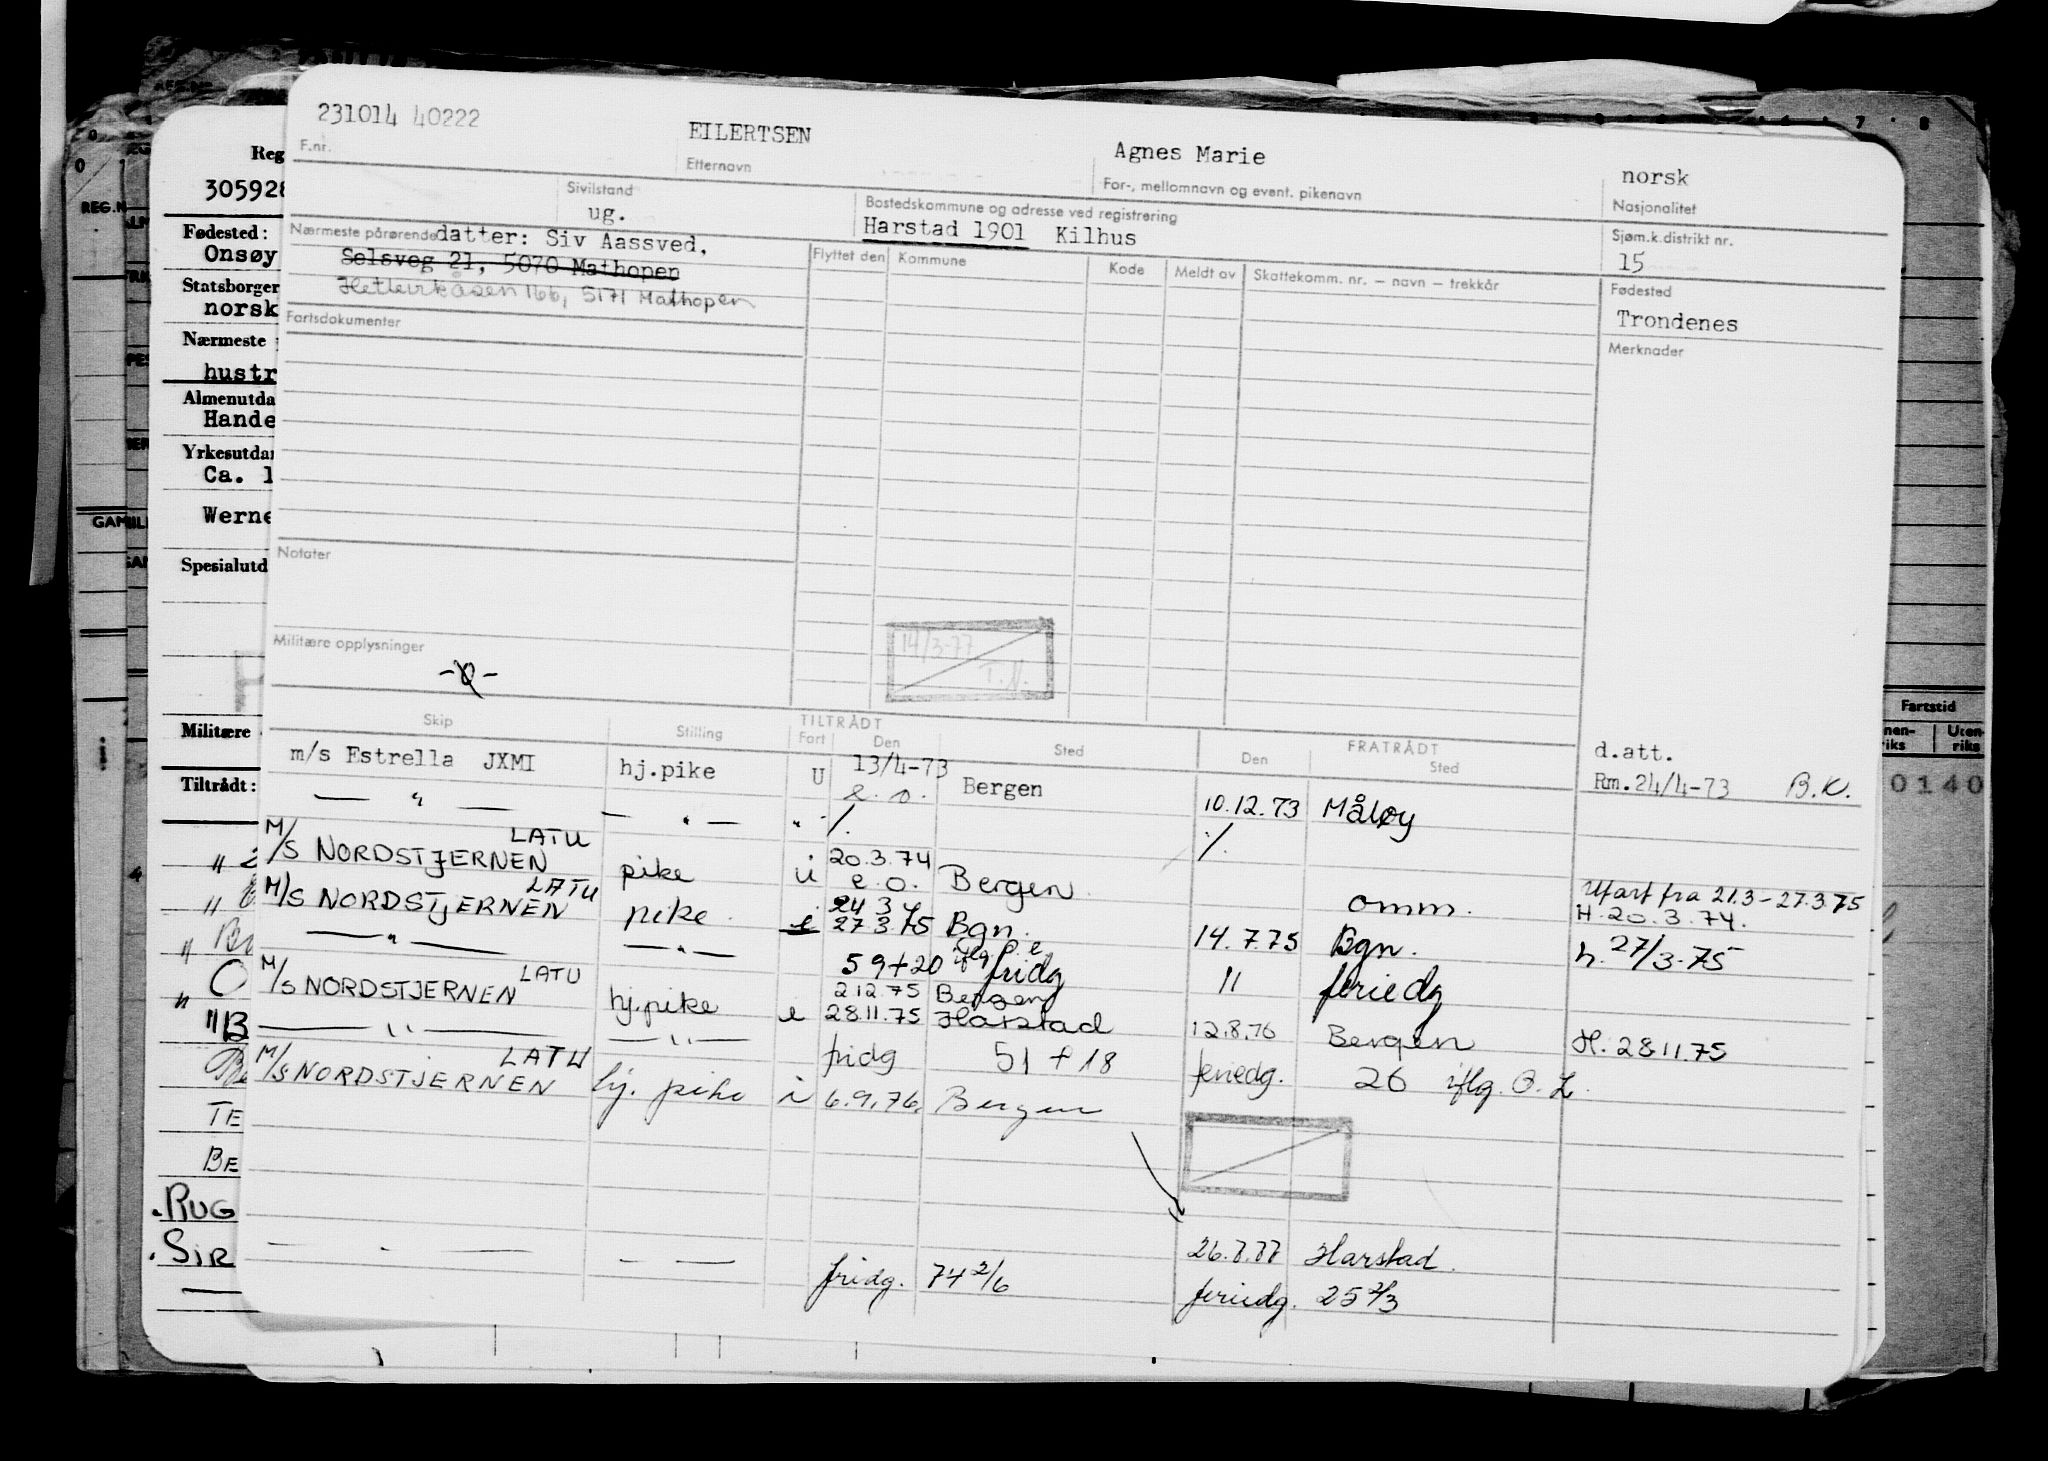 231014 40222 EILERTSEN Agnes Marie norsk
F.nr. Etternavn For-, mellomnavn og event. pikenavn Nasjonalitet
Sivilstand Bostedskommune og adresse ved registrering Sjøm.k.distrikt nr.
ug. Harstad 1901 Kilhus 15
Nærmeste pårørende datter: Siv Aassved.
Selsveg 21, 5070 Mathopen
166, 5171 Mathopen
Flyttet den Kommune Kode Meldt av Skattekomm. nr. – navn – trekkår Fødested
Trondenes
Fartsdokumenter Merknader
Notater
14/3-77
T.N.
Militære opplysninger
Skip Stilling TILTRÅDT FRATRÅDT
Fart Den Sted Den Sted
m/s Estrella JXMI hj.pike U 13/4-73 Bergen d.att.
Rm.24/4-73 B.K.
— " — — " — " e.o. 10.12.73 Måløy
M/S NORDSTJERNEN LATU pike i 20.3.74 Bergen
e.o. omm. Ufart fra 21.3-27.3.75
H.20.3.74.
M/S NORDSTJERNEN LATU pike 24 3
27.3.75 Bgn. 14.7.75 Bgn. h. 27/3-75
— " — — " — 59+20 fridg " feriedg
M/S NORDSTJERNEN LATU hj.pike 2.12.75 Bergen
28.11.75 Harstad 12.8.76 Bergen H. 28.11.75
— " — — " — fridg 51 + 18 feriedg. 26 iflg. O.L.
M/S NORDSTJERNEN LATU hj. pike i 6.9.76. Bergen
Harstad.
fridg. 74 2/6 feriedg. 25 2/3
Reg
305928
REG.N
Fødested:
Onsøy
Statsborger
norsk
Nærmeste
hustr
Almenutda
Hande
Yrkesutdan
Ca. 1
Werne
GAM
Spesialutd
Militære
Tiltrådt:
TE
BE
RUG
SIR
Fartstid
nen-
riks Uten-
riks
0140
7 8